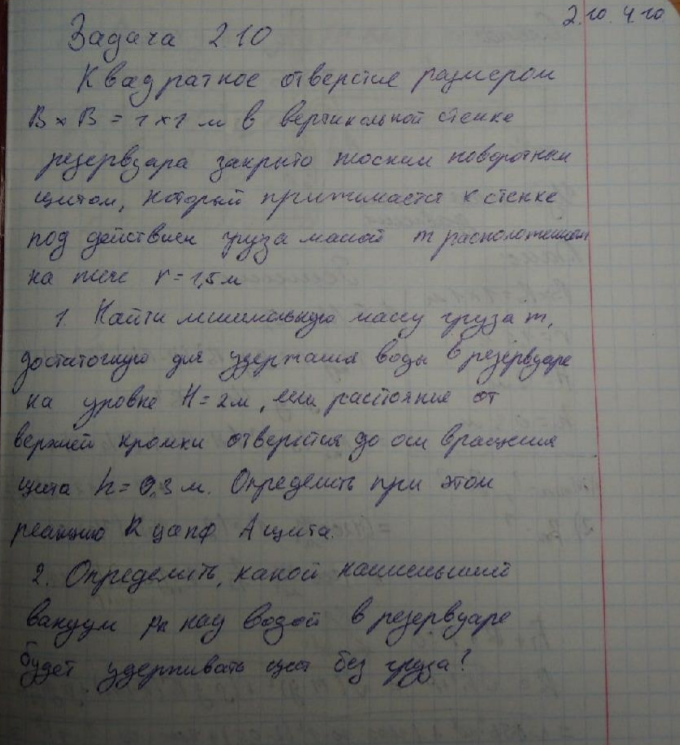 2.10. 4.10
Задача 2.10
Квадратное отверстие размером
B × B = 1 × 1 м в вертикальной стенке
резервуара закрыто плоским поворотным
щитом, который прижимается к стенке
под действием груза массой m расположенном
на плече r = 1,5 м
1. Найти минимальную массу груза m,
достаточную для удержания воды в резервуаре
на уровне H = 2 м, если расстояние от
верхней кромки отверстия до оси вращения
щита h = 0,3 м. Определить при этом
реакцию R цапф А щита.
2. Определить, какой наименьший
вакуум pв над водой в резервуаре
будет удерживать щит без груза?